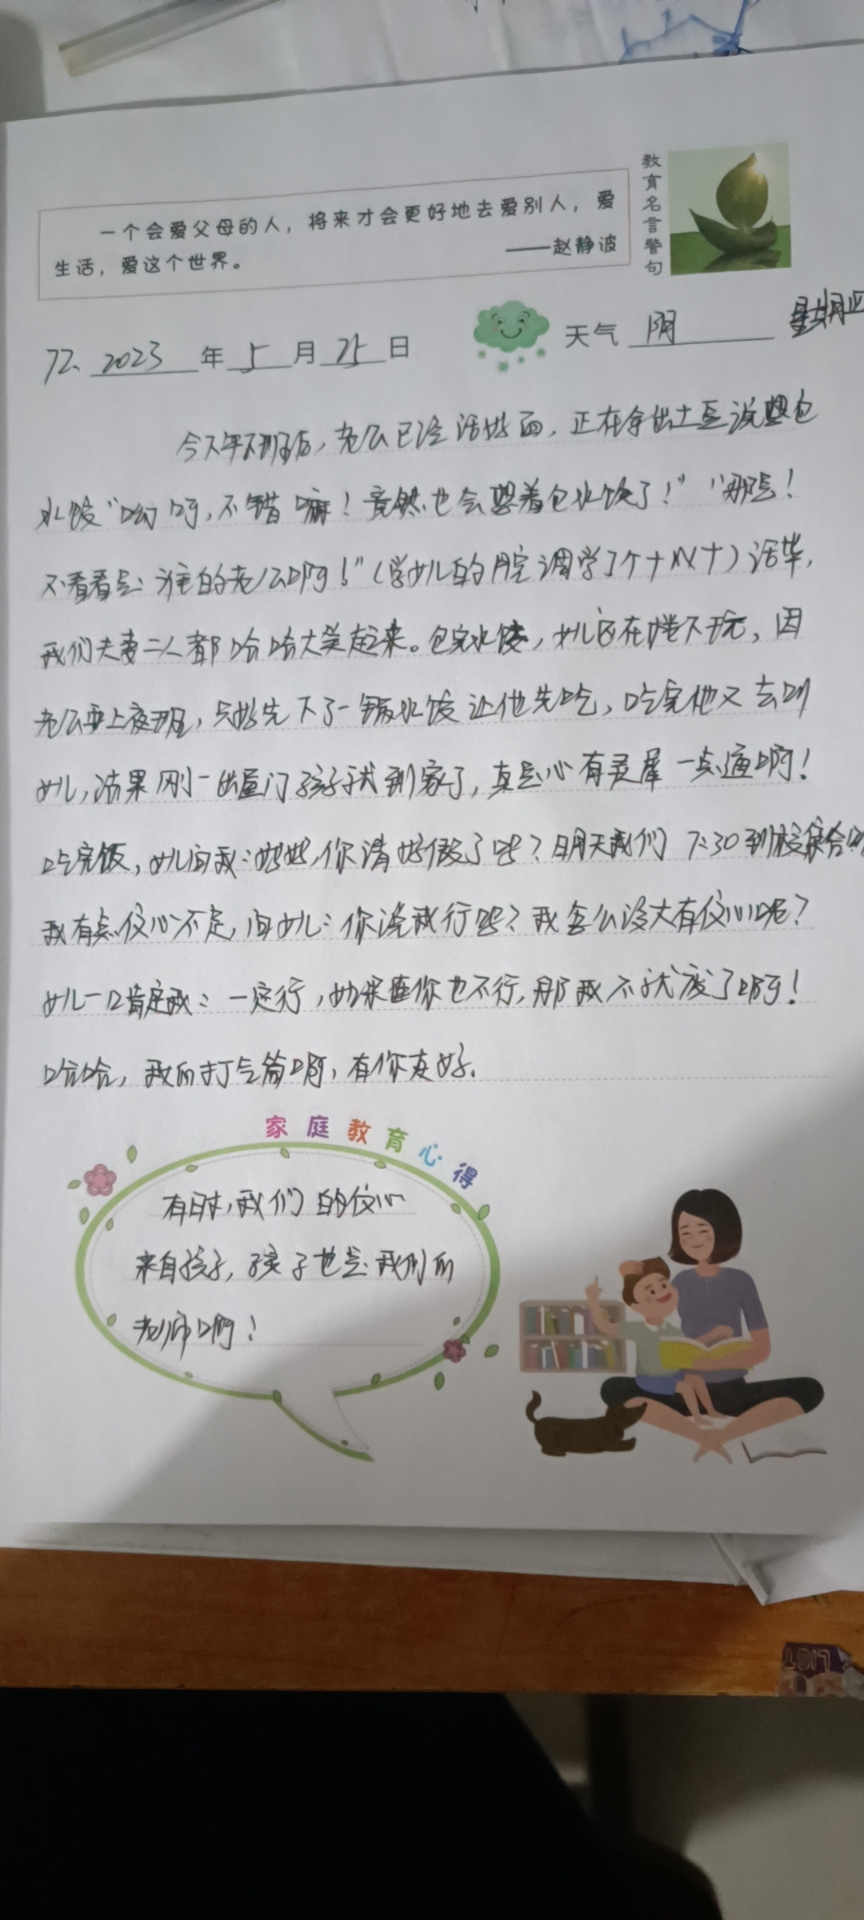 教育名言警句
一个会爱父母的人，将来才会更好地去爱别人，爱
生活，爱这个世界。 ——赵静波
72、2023年5月25日 天气 阴 星期四
今天下班后，老公已经活好面，正在拿出土豆说想包
水饺“哟呵，不错嘛！竟然也会想着包水饺了！”“那是！
不看看是谁的老公啊！”（学女儿的腔调学了个十成十）话毕，
我们夫妻二人都哈哈大笑起来。包完水饺，女儿还在楼下玩，因
老公要上夜班，只好先下了一锅水饺让他先吃，吃完他又去叫
女儿，结果刚一出屋门孩子就到家了，真是心有灵犀一点通啊！
吃完饭，女儿问我：妈妈，你请好假了吧？明天我们7:30到校集合
我有点信心不足，问女儿：你说我行吧？我怎么没大有信心呢？
女儿一口肯定我：一定行，如果连你也不行，那我不就废了啊！
哈哈，我的打气筒啊，有你真好.
家庭教育心得
有时，我们的信心
来自孩子，孩子也是我们的
老师啊！